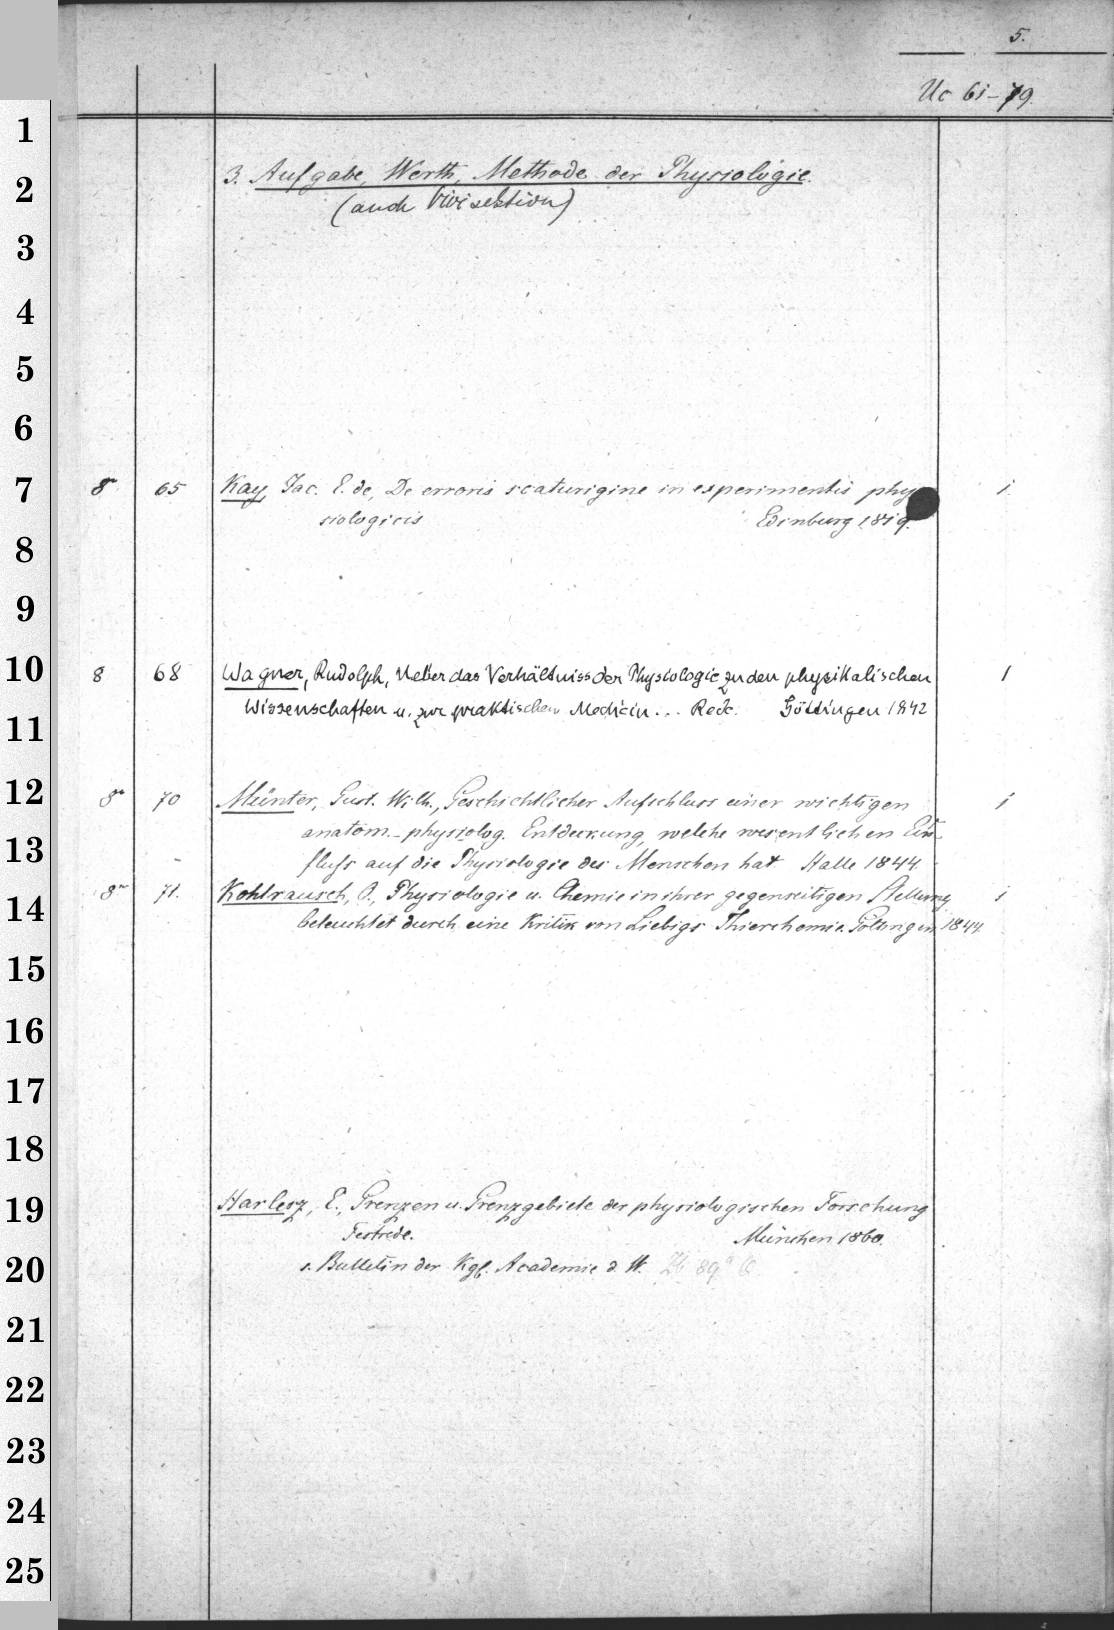 5.
Uc 61-79.
3. Aufgabe, Werth, Methode der Physiologie.
(auch Vivisektion)
8° 65 Kay, Jac. E. de, De erroris scaturigine in experimentis phy
siologicis Edinburg 1819. 1
8 68 Wagner, Rudolph, Ueber das Verhältniss der Physiologie zu den physikalischen 1
Wissenschaften u. zur praktischen Medicin ... Rede. Göttingen 1842
8° 70 Münter, Gust. Wilh., Geschichtlicher Aufschluss einer wichtigen 1
anatom.-physiolog. Entdeckung, welche wesentlichen Ein-
fluss auf die Physiologie des Menschen hat Halle 1844.
8° 71. Kohlrausch, O., Physiologie u. Chemie in ihrer gegenseitigen Stellung 1
beleuchtet durch eine Kritik von Liebigs Thierchemie. Göttingen 1844.
Harless, E., Grenzen u. Grenzgebiete der physiologischen Forschung
Festrede. München 1860.
s. Bulletin der Kgl. Academie d. W.
1
2
3
4
5
6
7
8
9
10
11
12
13
14
15
16
17
18
19
20
21
22
23
24
25